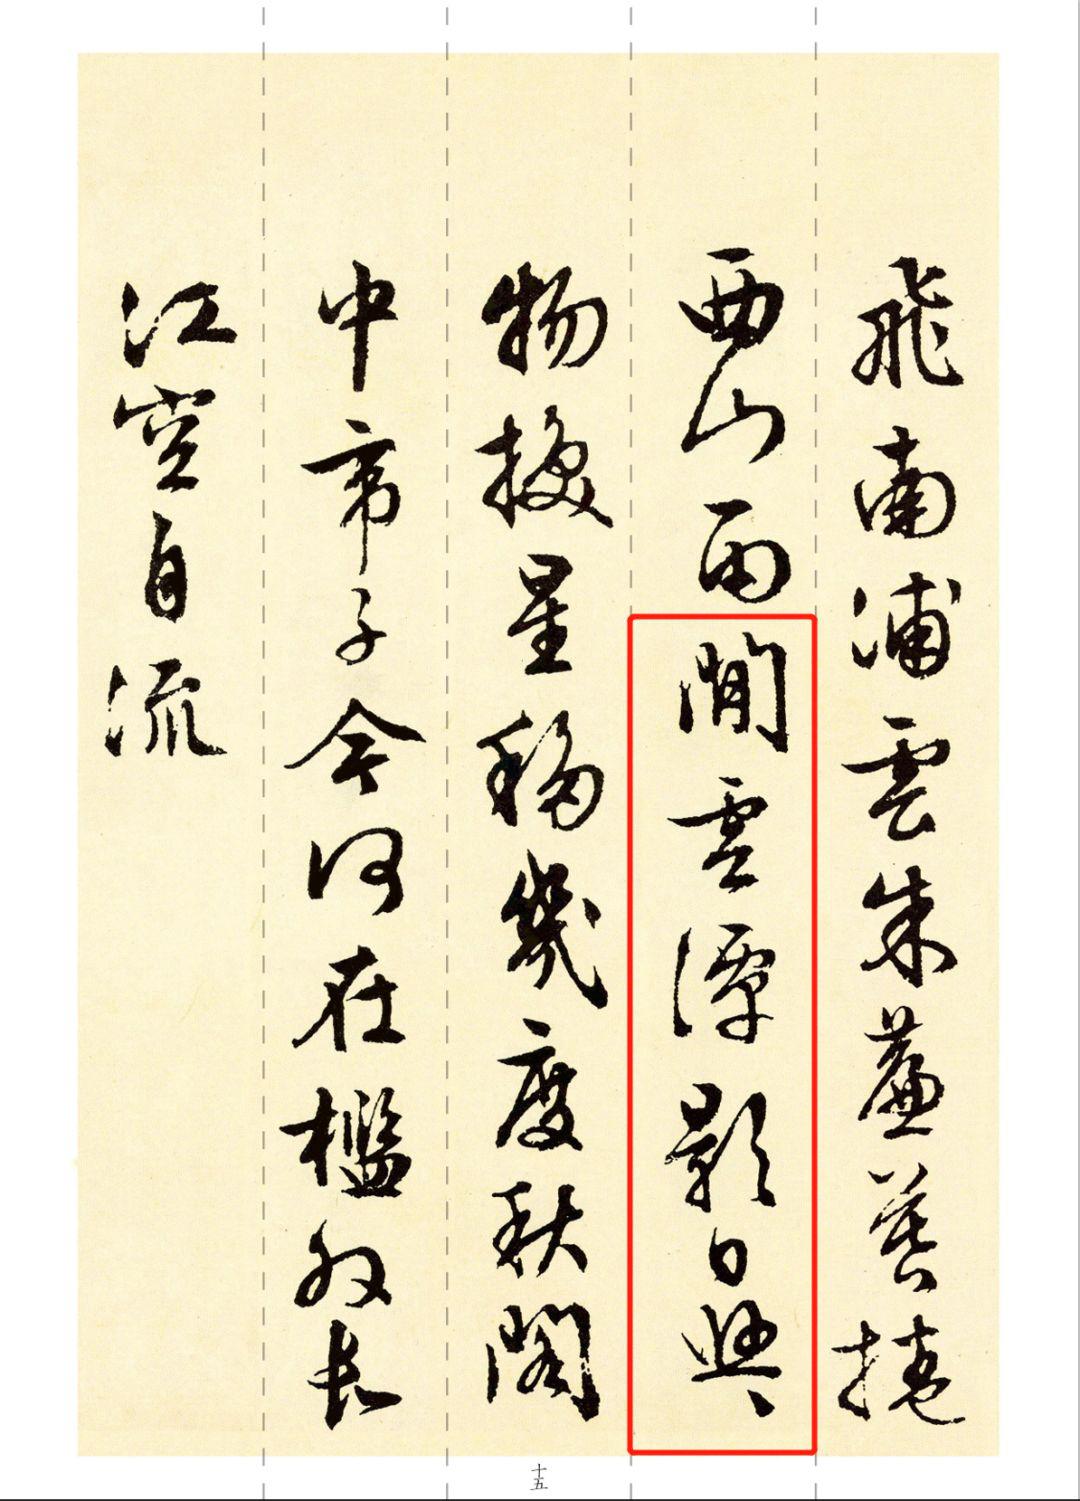 飛南浦雲朱簾暮捲
西山雨閒雲潭影日悠〻
物換星移幾度秋閣
中帝子今何在檻外長
江空自流
十五